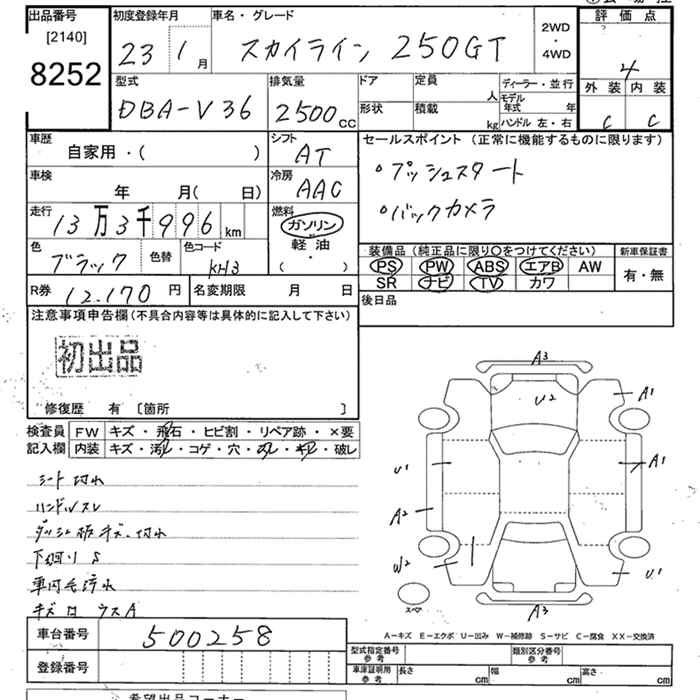 出品番号 初度登録年月 車名・グレード 評価点
[2140]
8252
23 1月 スカイライン 250GT 2WD・4WD 4
型式 排気量 ドア 定員 ディーラー・並行 外装 内装
DBA-V36 2500cc 形状 積載 人 kg モデル年式 年 ハンドル 左・右 C C
車歴 シフト セールスポイント (正常に機能するものに限ります)
自家用・( ) AT
・プッシュスタート
車検 冷房
年 月( 日) AAC
・バックカメラ
走行 燃料
13万3千996km ガソリン
軽油
( ・ )
色 色替 色コード
ブラック KH3
装備品 (純正品に限り○をつけてください) 新車保証書
PS PW ABS エアB AW 有・無
SR ナビ TV カワ
R券 12,170円 名変期限 月 日
後日品
注意事項申告欄(不具合内容等は具体的に記入して下さい)
初出品
修復歴 有 [箇所 ]
検査員 FW キズ・飛石・ヒビ割・リペア跡・×要
記入欄 内装 キズ・汚レ・コゲ・穴・スレ・キレ・破レ
シート汚れ
ハンドルスレ
ダッシュ板キズ、汚れ
下回りS
A3
U2
A1
U1
A1
A2
W2
U1
スペア
A3
A-キズ E-エクボ U-凹み W-補修跡 S-サビ C-腐食 XX-交換済
車台番号 500258
型式指定番号 参考 類別区分番号 参考
登録番号
車庫証明用 参考 長さ cm 幅 cm 高さ cm
希望出品コーナー